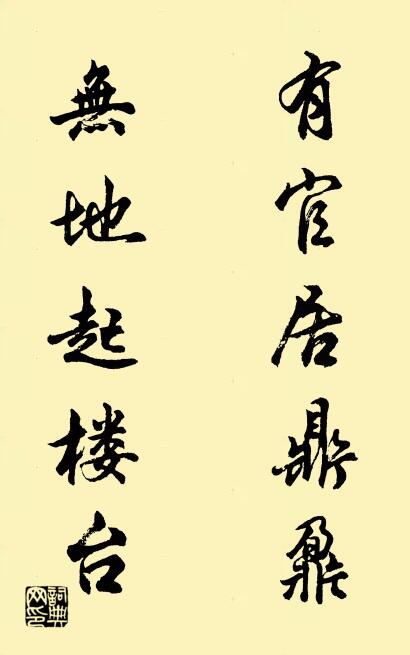 有官居鼎鼐
無地起楼台
詞典網印